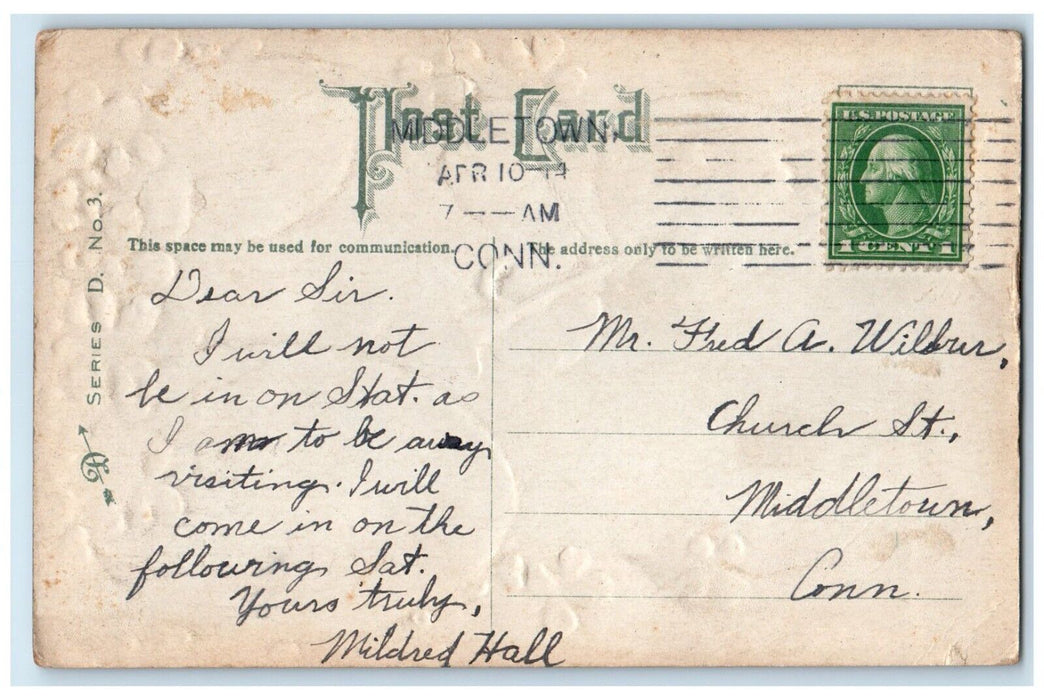 Post Card
MIDDLETOWN,
APR 10 14
7 — AM
CONN.
U.S. POSTAGE
1 CENT 1
This space may be used for communication.
The address only to be written here.
SERIES D. No 3.
Dear Sir.
I will not
be in on Stat. as
I am to be away
visiting. I will
come in on the
following Sat.
Yours truly,
Mildred Hall
Mr. Fred A. Wilbur,
Church St.,
Middletown,
Conn.